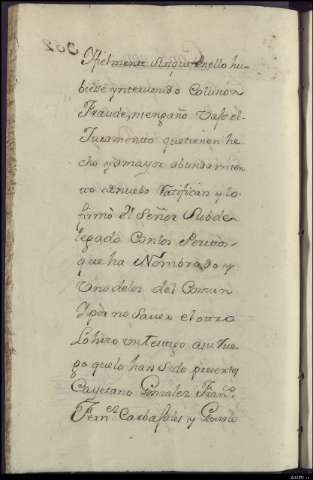 fielmente sin que en ello hu-
biese yntervenido Colusion
Fraude, ni engaño vajo el
Juramento que tienen he
cho y a mayor abundamien
to de nuebo ratifican y lo
firmó el Señor Subde
legado con los Peritos
que ha Nombrado y
Uno de los del Comun
y por no saver el otro
lo hizo un testigo a su rue
go que lo han sido presentes
Cayetano Gonzalez Fran.co
Fern.ez Carbajales y